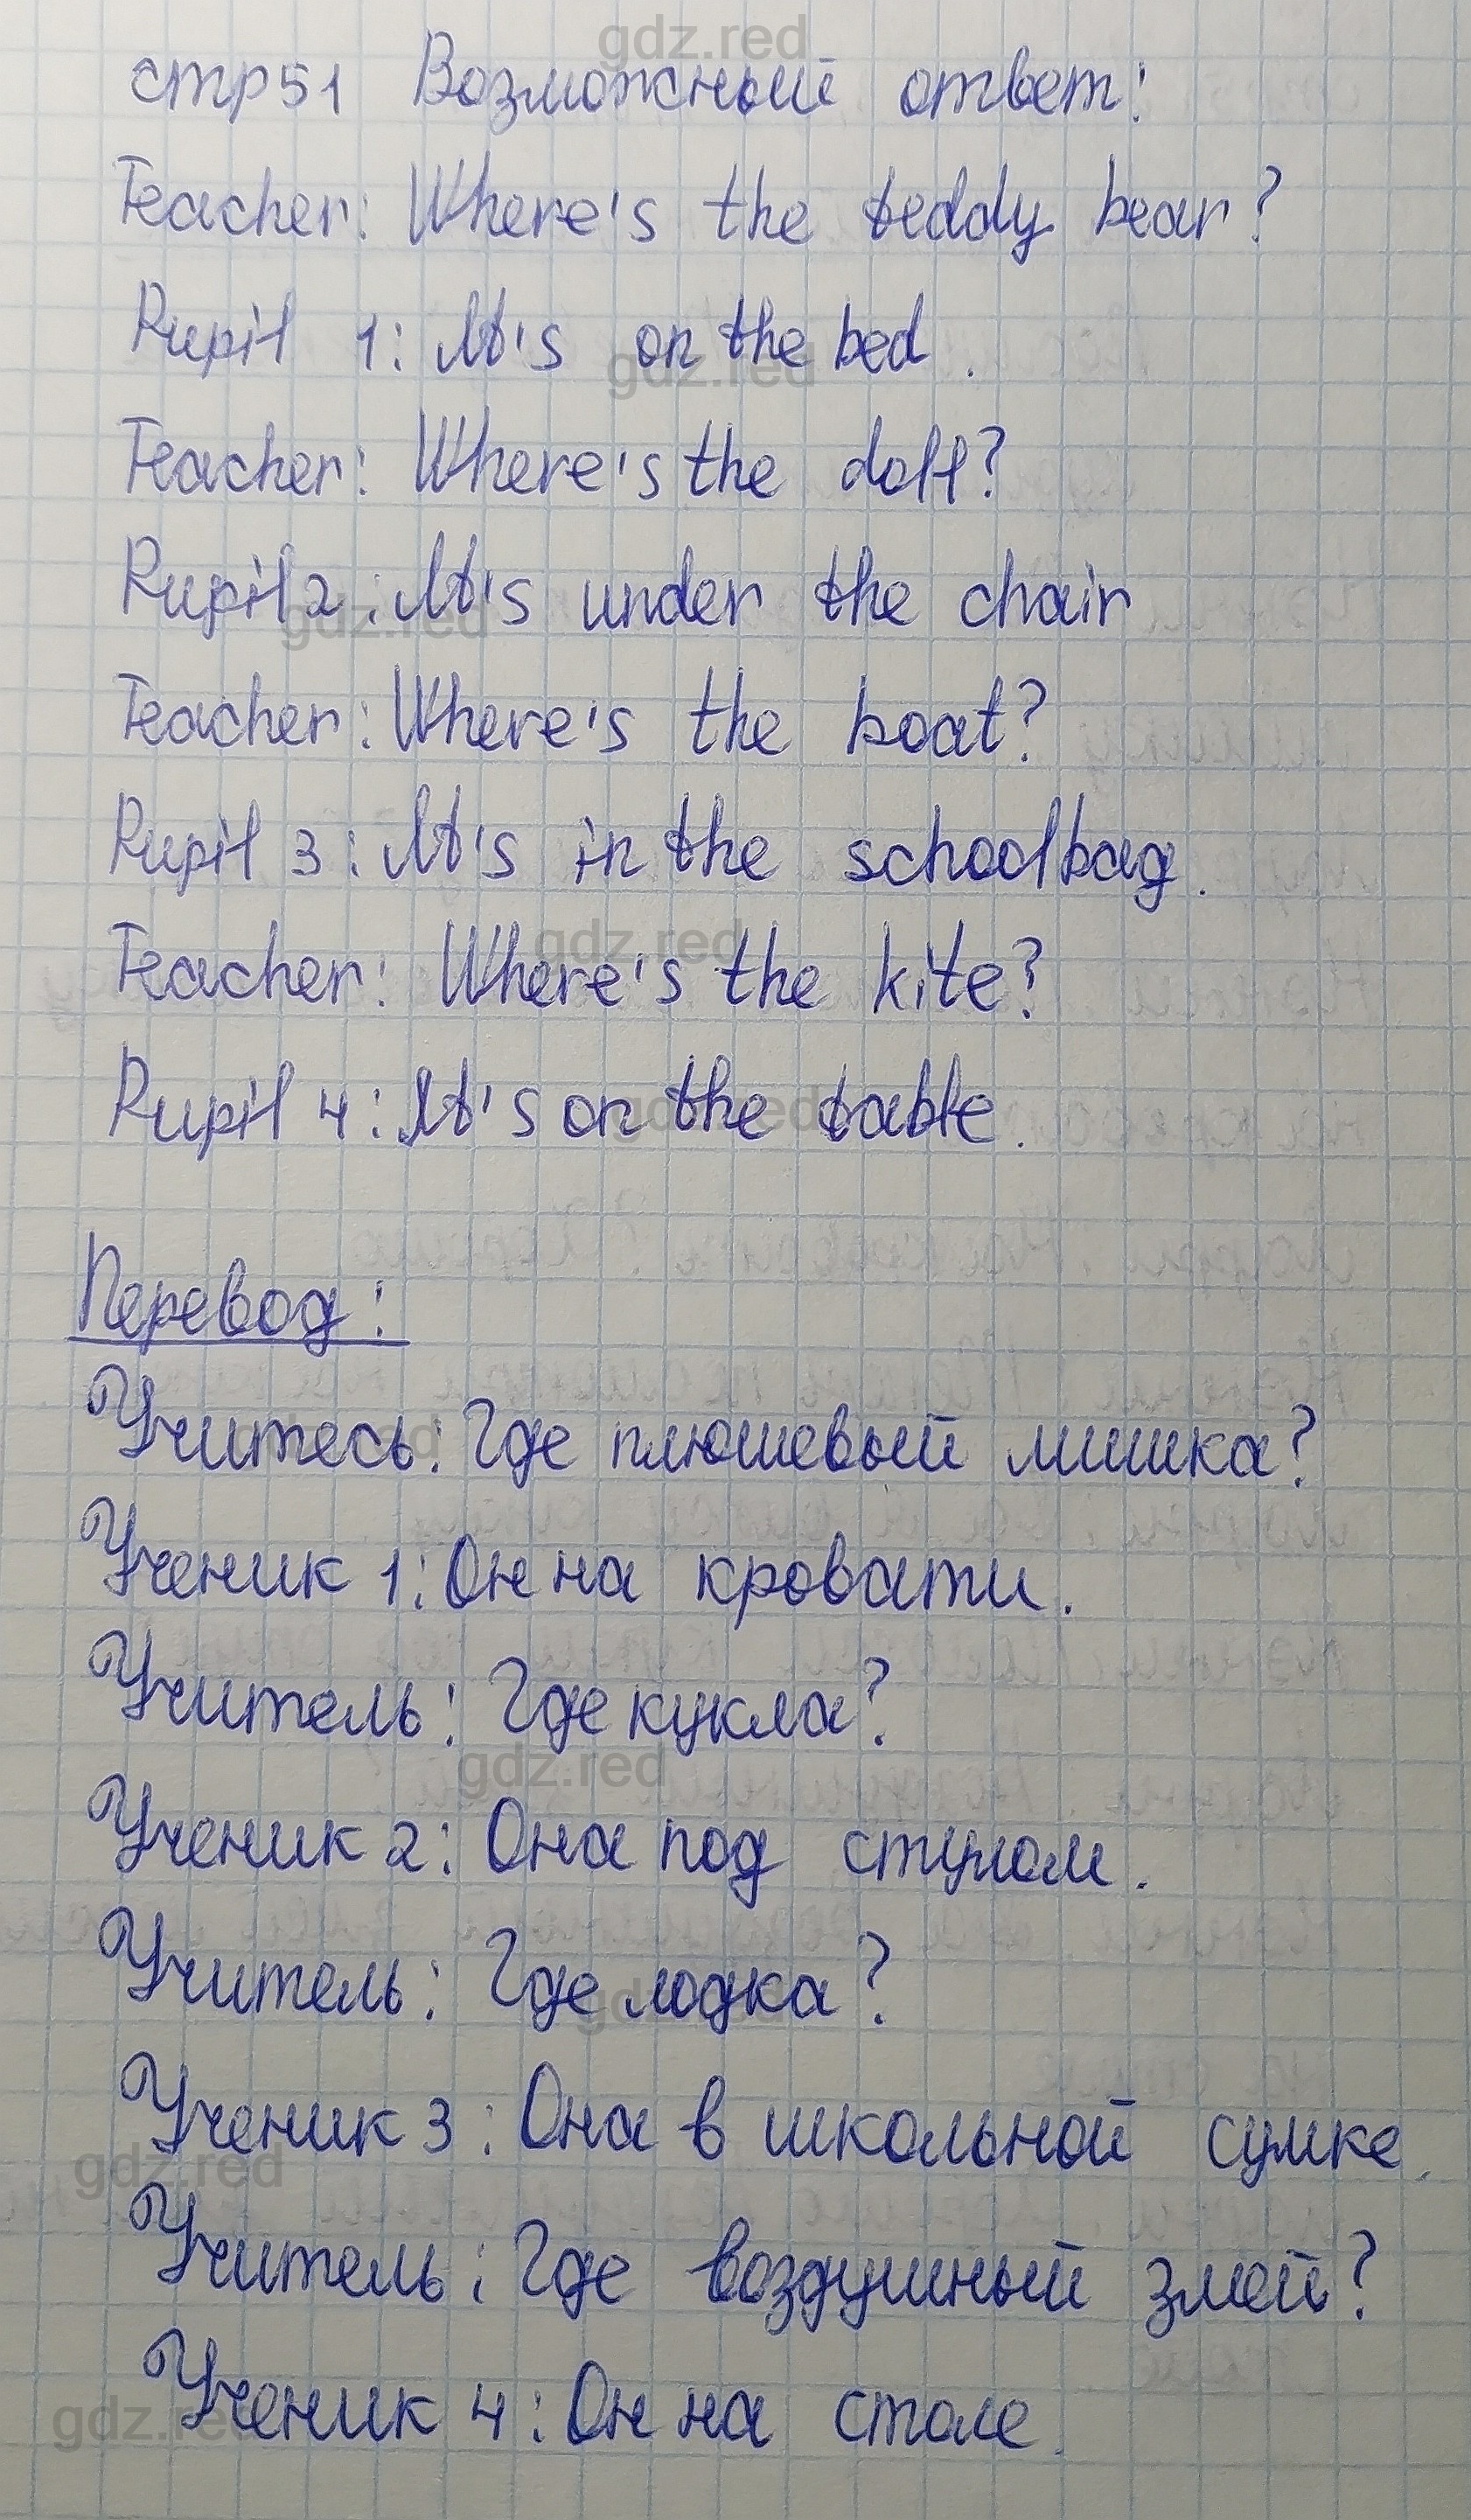 стр 51 Возможный ответ:
Teacher: Where's the teddy bear?
Pupil 1: It's on the bed.
Teacher: Where's the doll?
Pupil 2: It's under the chair
Teacher: Where's the boat?
Pupil 3: It's in the schoolbag.
Teacher: Where's the kite?
Pupil 4: It's on the table.
Перевод:
Учитесь: Где плюшевый мишка?
Ученик 1: Он на кровати.
Учитель: Где кукла?
Ученик 2: Она под стулом.
Учитель: Где лодка?
Ученик 3: Она в школьной сумке.
Учитель: Где воздушный змей?
Ученик 4: Он на столе.
gdz.red
gdz.red
gdz.red
gdz.red
gdz.red
gdz.red
gdz.red
gdz.red
gdz.red
gdz.red